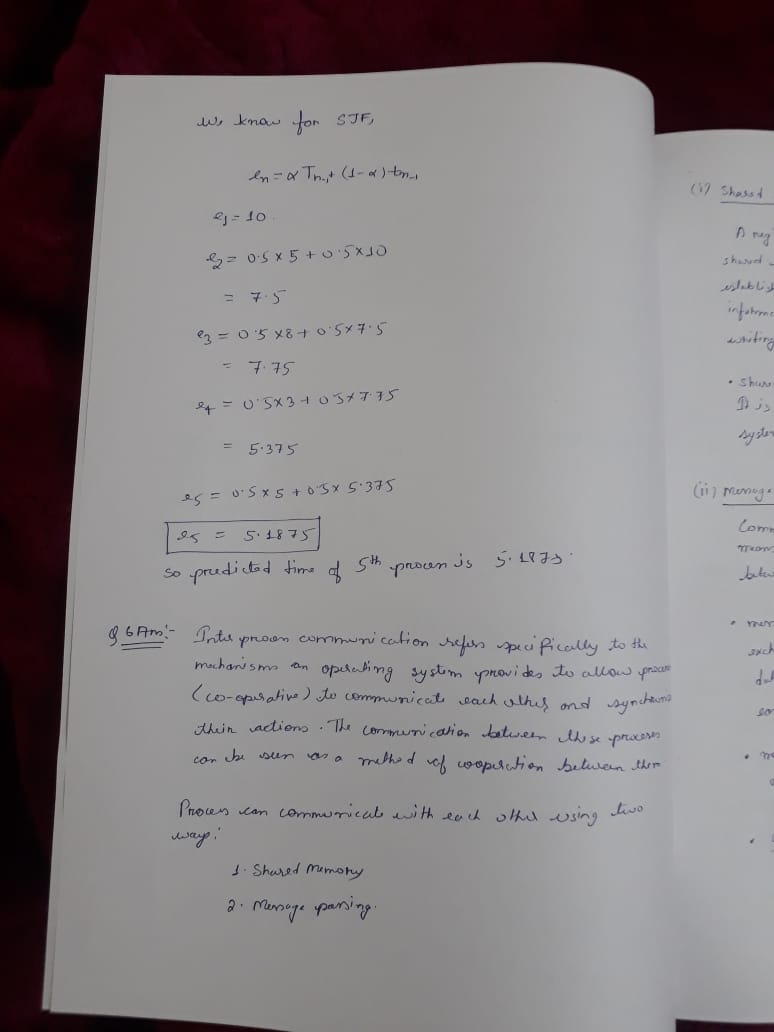 We know for SJF,
en = α Tn-1 + (1-α) tn-1
e1 = 10
e2 = 0.5 x 5 + 0.5 x 10
= 7.5
e3 = 0.5 x 8 + 0.5 x 7.5
= 7.75
e4 = 0.5 x 3 + 0.5 x 7.75
= 5.375
e5 = 0.5 x 5 + 0.5 x 5.375
e5 = 5.1875
so predicted time of 5th process is 5.1875.
Q 6 Ans:- Inter process communication refers specifically to the
mechanisms an operating system provides to allow process
(co-operative) to communicate each other and synchronis
their actions. The communication between these processes
can be seen as a method of cooperation between them
Process can communicate with each other using two
ways:
1. Shared memory
2. Message parsing.
(i) Shared
A reg
shared
establis
informa
writing
• Share
It is
system
(ii) Message
Comm
means
betw
• mes
exch